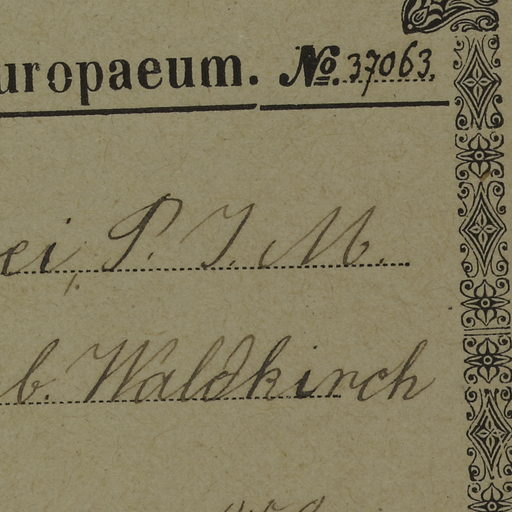 uropaeum. No. 37063.
ei, P. J. M.
b. Waldkirch